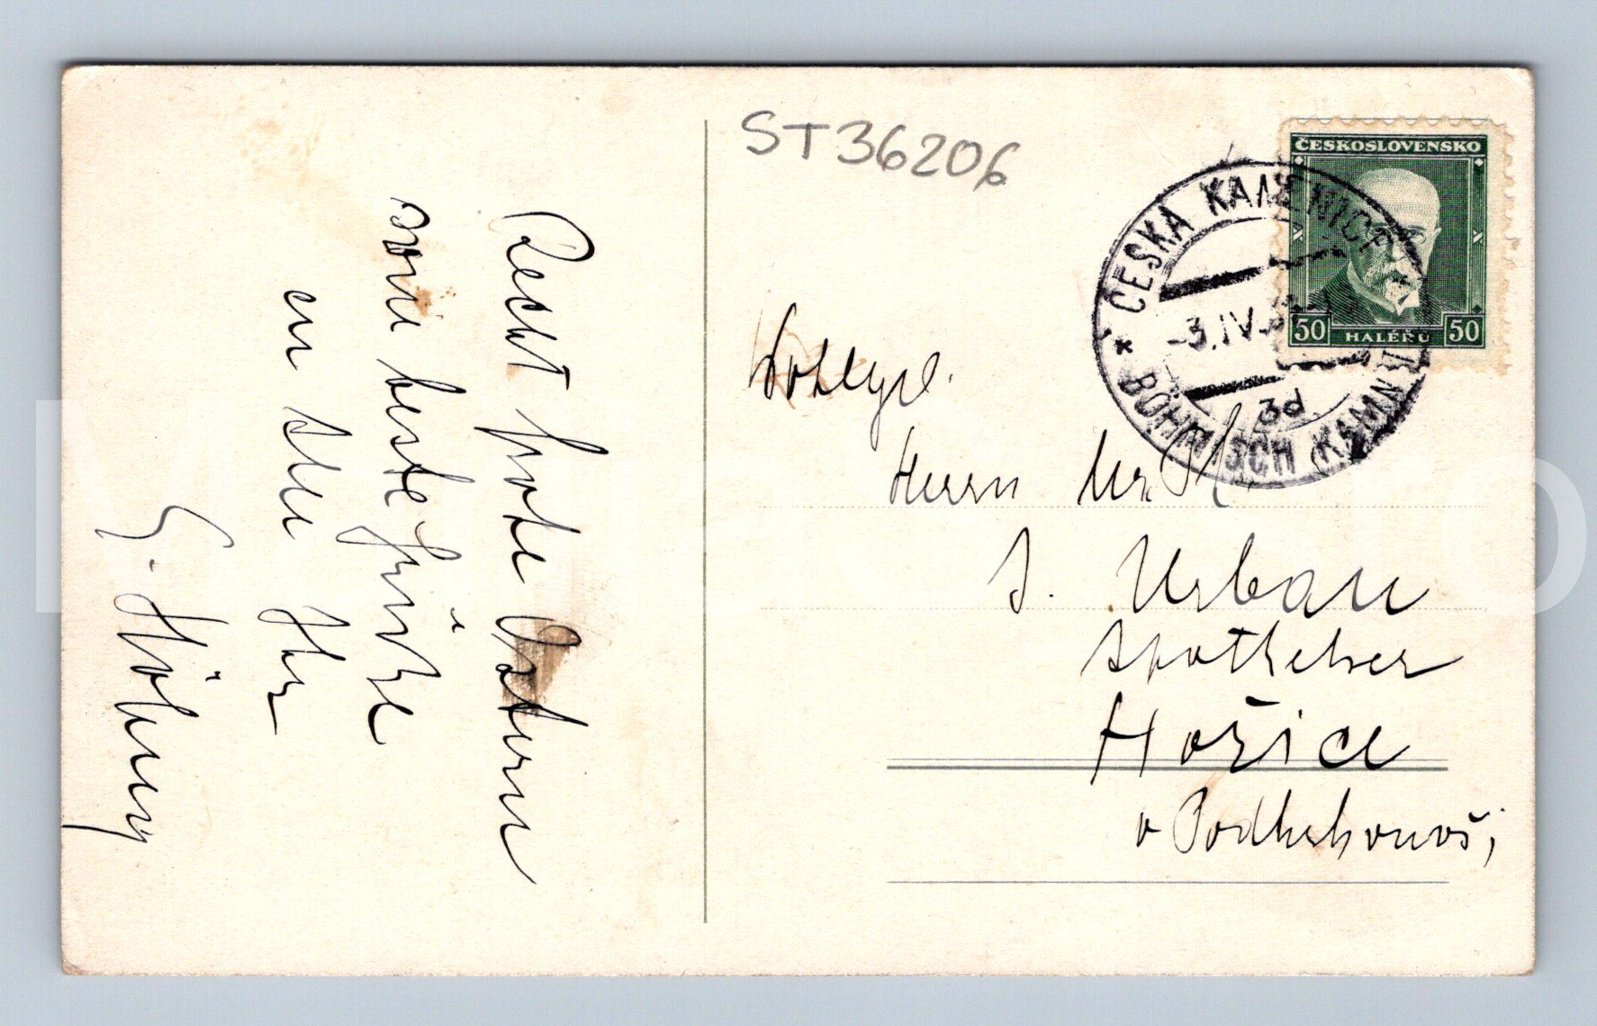 Recht frohe Ostern
sowie beste Grüße
an Sie Ihr
G.
ST36206
ČESKOSLOVENSKO
50 HALÉŘŮ 50
* ČESKÁ KAMENICE
-3.IV.
3d
BÖHMISCH KAMNITZ
Herrn Mr. Ph.
J. Urban
Apotheker
Hořice
v Podkrkonoší